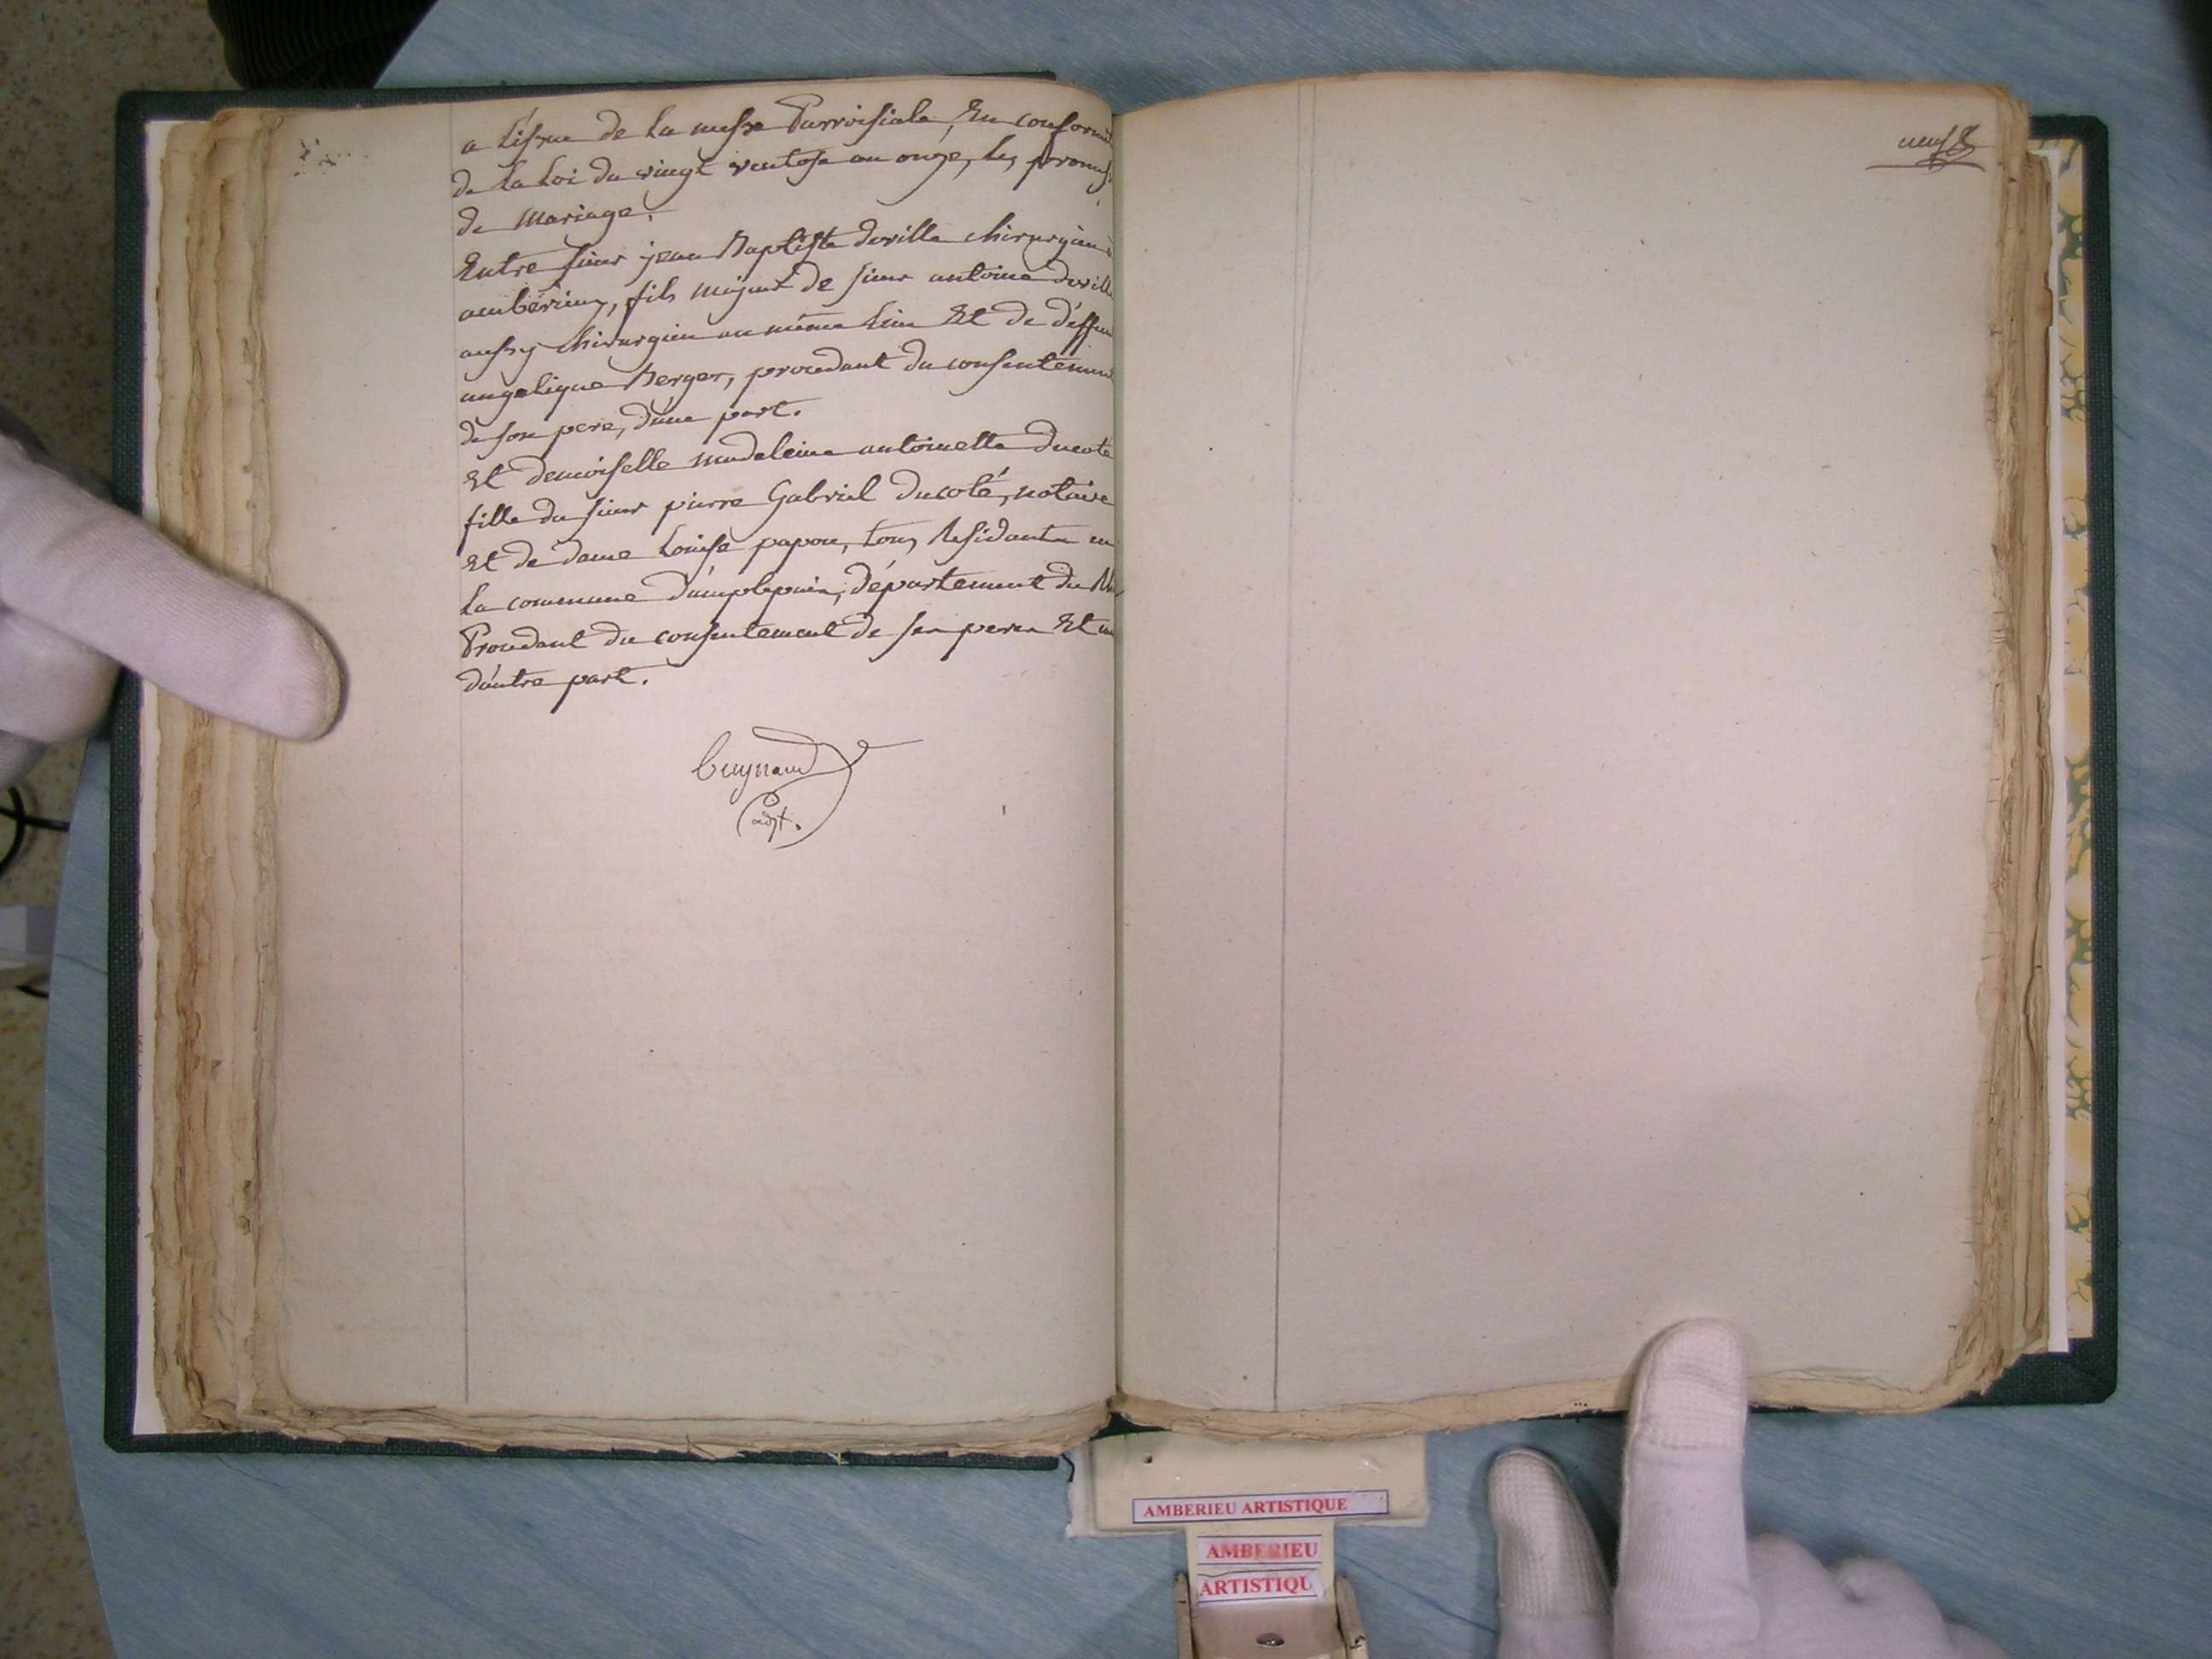 a L'issue de La messe Parroisiale, En conformi
de La Loi du vingt ventose an onze, les promess
de Mariage.
Entre sieur jean Baptiste deville chirurgien à
amberieux, fils majeur de sieur antoine devill
aussy chirurgien au même Lieu Et de d'effun
angelique Berger, procedant du consentemen
de son pere, d'une part.
Et demoiselle madeleine antoinette Ducoté
fille du sieur pierre Gabriel Ducoté, notaire
Et de dame Louise papon, tous Residants en
La commune d'amplepuis, département du Rh
Procedant du consentement de ses peres Et m
d'autre part.
Cuynaud
adjt.
neuf
AMBERIEU ARTISTIQUE
AMBERIEU
ARTISTIQU